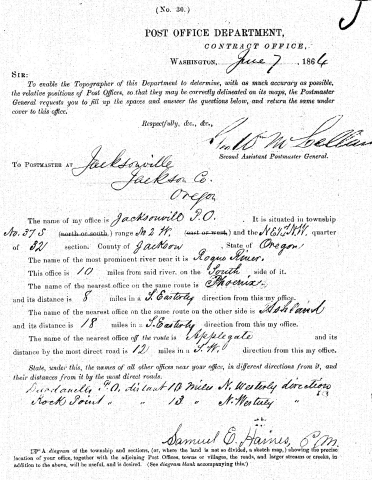 (No. 30.)
POST OFFICE DEPARTMENT,
CONTRACT OFFICE,
WASHINGTON, June 7, 1864
SIR:
To enable the Topographer of this Department to determine, with as much accuracy as possible,
the relative positions of Post Offices, so that they may be correctly delineated on its maps, the Postmaster
General requests you to fill up the spaces and answer the questions below, and return the same under
cover to this office.
Respectfully, &c., &c.,
Geo W McLellan
Second Assistant Postmaster General.
TO POSTMASTER AT Jacksonville
Jackson Co.
Oregon
The name of my office is Jacksonvill P.O. It is situated in township
No. 37 S (north or south) range No 2 W (east or west) and the quarter
of 32 section. County of Jackson, State of Oregon
The name of the most prominent river near it is Rogue River.
This office is 10 miles from said river, on the South side of it.
The name of the nearest office on the same route is Phoenix
and its distance is 8 miles in a S. Easterly direction from this my office.
The name of the nearest office on the same route on the other side is Ashland
and its distance is 18 miles in a S. Easterly direction from this my office.
The name of the nearest office off the route is Applegate and its
distance by the most direct road is 12 miles in a S. W. direction from this my office.
State, under this, the names of all other offices near your office, in different directions from it, and
their distances from it by the most direct roads.
Dardanells P.O. distant 10 miles N. Westerly direction
Rock Point " " 13 " N. Westerly "
Samuel E. Haines, P.M.
A diagram of the township and sections, (or, where the land is not so divided, a sketch map,) showing the precise
location of your office, together with the adjoining Post Offices, towns or villages, the roads, and larger streams or creeks, in
addition to the above, will be useful, and is desired. (See diagram blank accompanying this.)